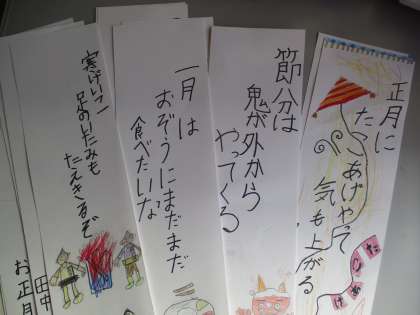 正月に
たこあげやって
気も上がる
節分は
鬼が外から
やってくる
一月は
おぞうにまだまだ
食べたいな
寒げいこ
足のいたみも
たえきるぞ
田中
お正月